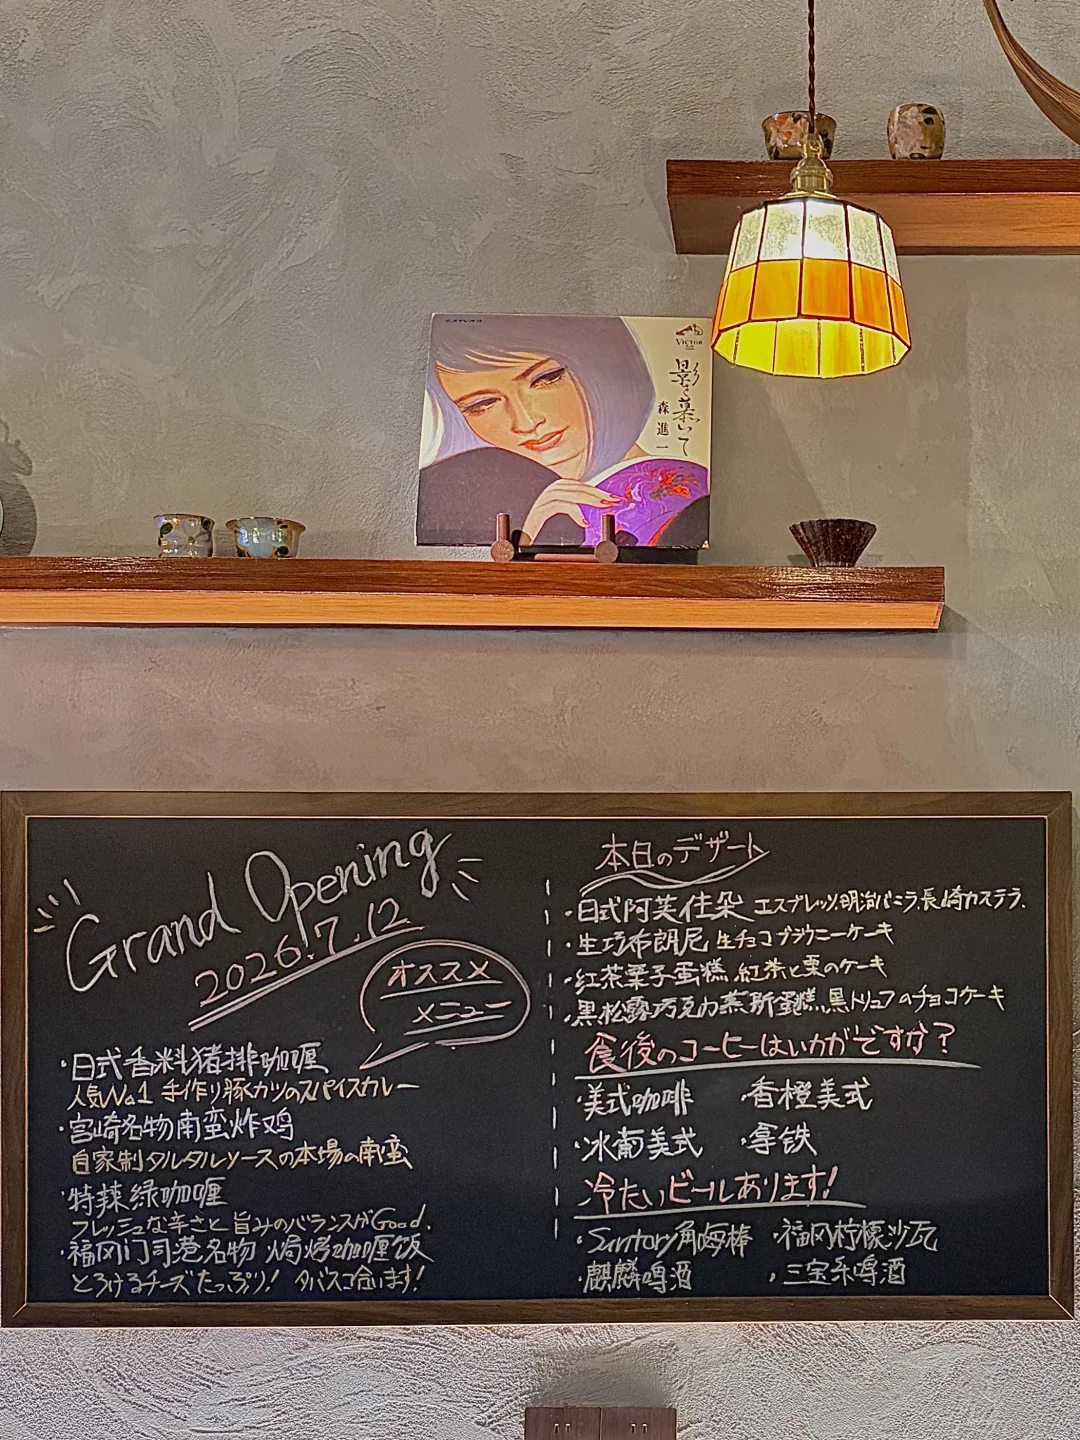 VICTOR
影を慕いて
森進一
Grand Opening
2026.7.12
オススメ
メニュー
・日式香料猪排咖喱
人気No.1 手作り豚カツのスパイスカレー
・宮崎名物南蛮炸鸡
自家制タルタルソースの本場の南蛮
・特辣绿咖喱
フレッシュな辛さと旨みのバランスがGood.
・福冈门司港名物 焗烤咖喱饭
とろけるチーズたっぷり! タバスコ合います!
本日のデザート
・日式阿芙佳朵 エスプレッソ.明治バニラ.長崎カステラ.
・生巧布朗尼 生チョコブラウニーケーキ
・红茶栗子蛋糕 紅茶と栗のケーキ
・黒松露巧克力慕斯蛋糕 黒トリュフのチョコケーキ
食後のコーヒーはいかがですか?
・美式咖啡 ・香橙美式
・冰葡美式 ・拿铁
冷たいビールあります!
・Suntory角嗨棒 ・福冈柠檬沙瓦
・麒麟啤酒 ・三宝乐啤酒